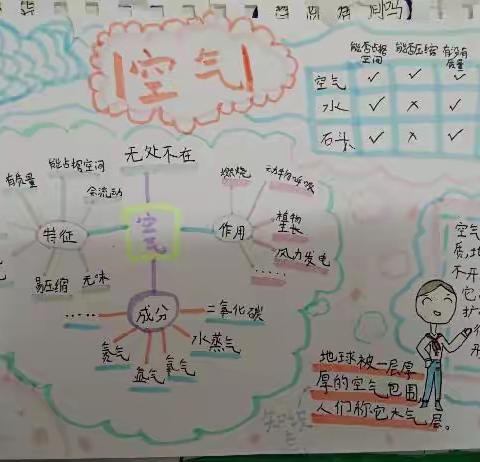 间吗
空气
能否占据空间
能否压缩
有没有质量
空气 ✓ ✓ ✓
水 ✓ × ✓
石头 ✓ × ✓
无处不在
空气
特征
有质量
能占据空间
会流动
易压缩
无味
作用
燃烧
动物呼吸
植物
生长
风力发电
……
成分
二氧化碳
水蒸气
氧气
氮气
……
空气
质,地
不开
它
地球被一层厚
厚的空气包围,
人们称它大气层。